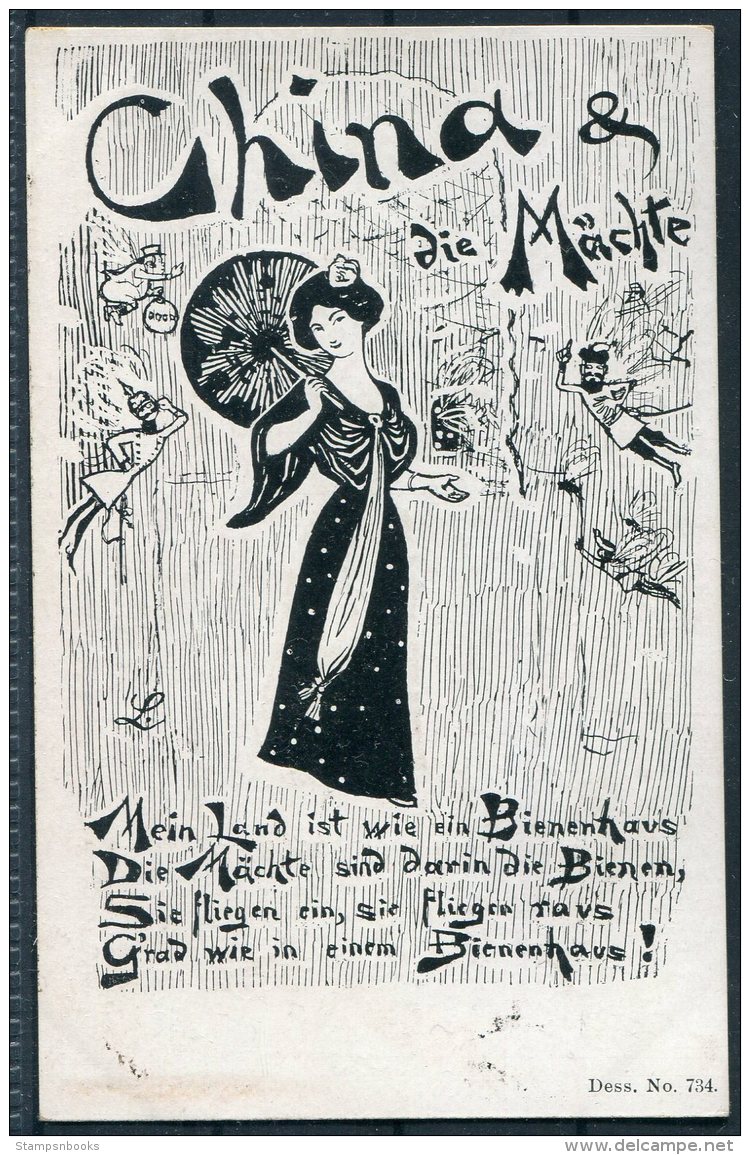 China &
die Mächte
L.
Mein Land ist wie ein Bienenhaus
Die Mächte sind darin die Bienen,
Sie fliegen ein, sie fliegen raus
G'rad wie in einem Bienenhaus!
Dess. No. 734.
Stampsnbooks